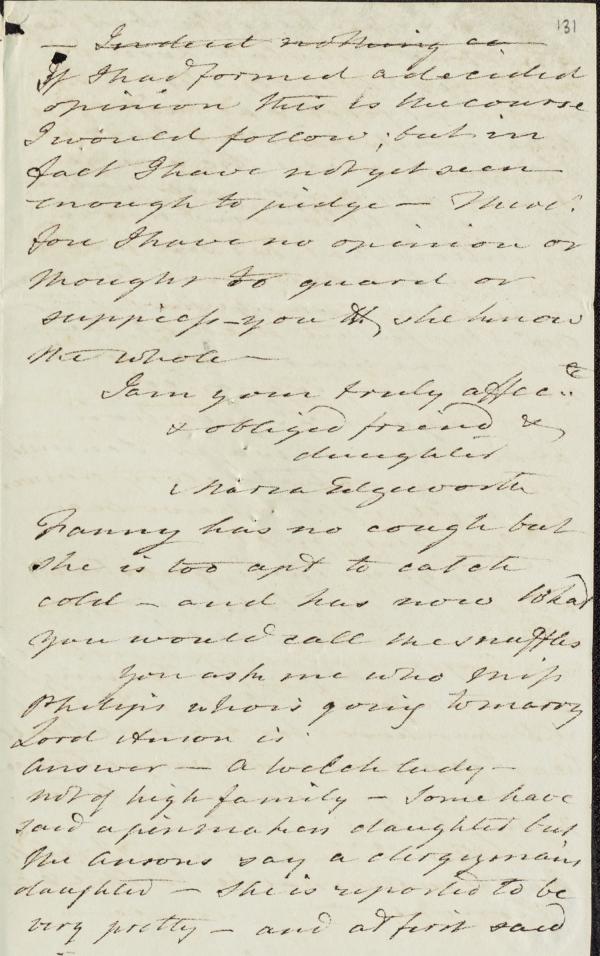 131
— Indeed nothing ca
If I had formed a decided
opinion this is the course
I would follow; but in
fact I have not yet seen
enough to judge — There:
fore I have no opinion or
thought to guard or
suppress – you & she know
the whole —
I am your truly affec.te
& obliged friend &
daughter
Maria Edgeworth
Fanny has no cough but
she is too apt to catch
cold – and has now what
you would call the snuffles
You ask me who Miss
Philips who is going to marry
Lord Anson is.
Answer — A welch lady –
not of high family – Some have
said a pinmakers daughter but
the Ansons say a clergymans
daughter – She is reported to be
very pretty – and at first said